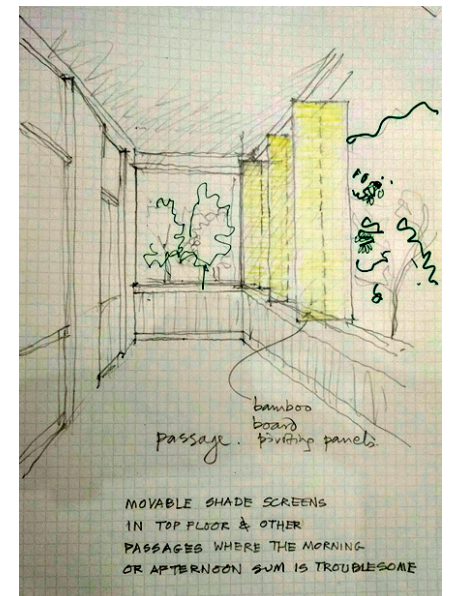 bamboo
board
passage. pivoting panels.
MOVABLE SHADE SCREENS
IN TOP FLOOR & OTHER
PASSAGES WHERE THE MORNING
OR AFTERNOON SUM IS TROUBLESOME